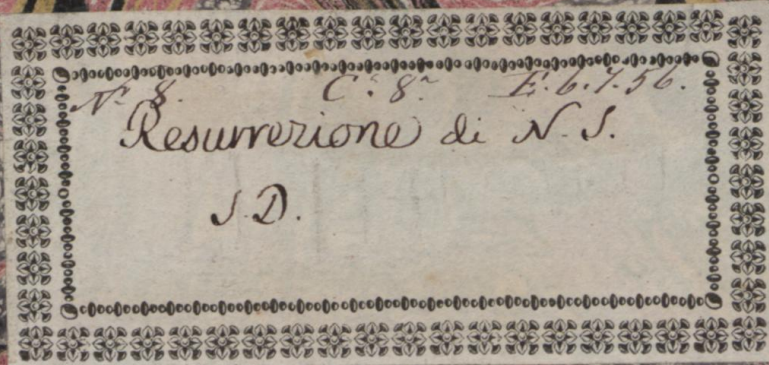 Nº 8. Cª 8ª E.6.7.56.
Resurrezione di N. S.
S. D.